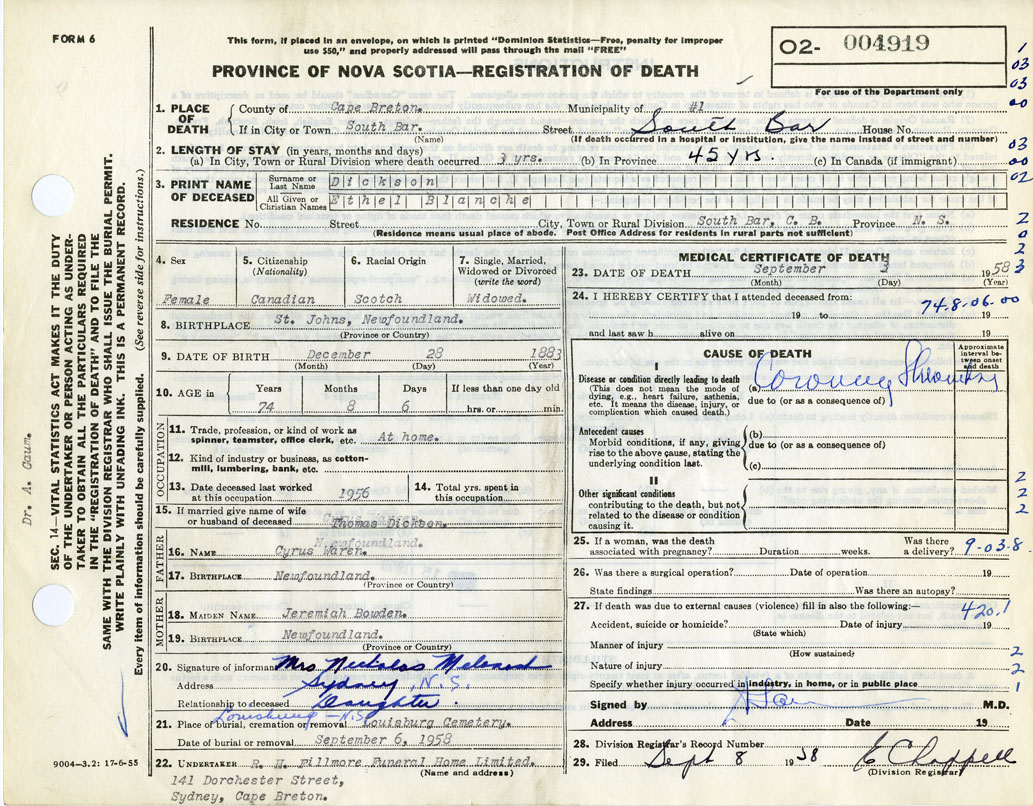 FORM 6
This form, if placed in an envelope, on which is printed "Dominion Statistics—Free, penalty for improper
use $50," and properly addressed will pass through the mail "FREE"
PROVINCE OF NOVA SCOTIA—REGISTRATION OF DEATH
02- 004919
For use of the Department only
1. PLACE OF DEATH
County of Cape Breton. Municipality of #1
If in City or Town South Bar. Street South Bar House No.
(Name) (If death occurred in a hospital or institution, give the name instead of street and number)
2. LENGTH OF STAY (in years, months and days)
(a) In City, Town or Rural Division where death occurred 3 yrs. (b) In Province 45 yrs. (c) In Canada (if immigrant)
3. PRINT NAME OF DECEASED
Surname or Last Name Dickson
All Given or Christian Names Ethel Blanche
RESIDENCE No. Street City, Town or Rural Division South Bar, C. B. Province N. S.
(Residence means usual place of abode. Post Office Address for residents in rural parts not sufficient)
4. Sex Female
5. Citizenship (Nationality) Canadian
6. Racial Origin Scotch
7. Single, Married, Widowed or Divorced (write the word) Widowed.
8. BIRTHPLACE St. Johns, Newfoundland.
(Province or Country)
9. DATE OF BIRTH December 28 1883
(Month) (Day) (Year)
10. AGE in Years Months Days If less than one day old
74 8 6 hrs. or min.
OCCUPATION
11. Trade, profession, or kind of work as
spinner, teamster, office clerk, etc. At home.
12. Kind of industry or business, as cotton-
mill, lumbering, bank, etc.
13. Date deceased last worked
at this occupation 1956
14. Total yrs. spent in
this occupation
15. If married give name of wife
or husband of deceased Thomas Dickson.
FATHER
Newfoundland.
16. NAME Cyrus Waren.
17. BIRTHPLACE Newfoundland.
(Province or Country)
MOTHER
18. MAIDEN NAME Jeremiah Bowden.
19. BIRTHPLACE Newfoundland.
(Province or Country)
20. Signature of informant Mrs Nicholas
Address Sydney, N.S.
Relationship to deceased Daughter.
Louisburg - N.S.
21. Place of burial, cremation or removal Louisburg Cemetery.
Date of burial or removal September 6, 1958
22. UNDERTAKER R. H. Fillmore Funeral Home Limited.
(Name and address)
141 Dorchester Street,
Sydney, Cape Breton.
MEDICAL CERTIFICATE OF DEATH
23. DATE OF DEATH September 3 1958
(Month) (Day) (Year)
24. I HEREBY CERTIFY that I attended deceased from:
74-8-06.00
19 to 19
and last saw h alive on 19
CAUSE OF DEATH
Approximate interval between onset and death
I
Disease or condition directly leading to death
(This does not mean the mode of
dying, e.g., heart failure, asthenia,
etc. It means the disease, injury, or
complication which caused death.)
(a) Coronary Thrombosis
due to (or as a consequence of)
Antecedent causes
Morbid conditions, if any, giving
rise to the above cause, stating the
underlying condition last.
(b)
due to (or as a consequence of)
(c)
II
Other significant conditions
contributing to the death, but not
related to the disease or condition
causing it.
25. If a woman, was the death
associated with pregnancy? Duration weeks. Was there
a delivery? 9-03-8
26. Was there a surgical operation? Date of operation 19
State findings Was there an autopsy?
27. If death was due to external causes (violence) fill in also the following:—
420.1
Accident, suicide or homicide? Date of injury 19
(State which)
Manner of injury
(How sustained)
Nature of injury
Specify whether injury occurred in industry, in home, or in public place
Signed by M.D.
Address Date 19
28. Division Registrar's Record Number
29. Filed Sept 8 1958 E Chappell
(Division Registrar)
1
03
03
00
03
00
02
2
0
2
3
2
2
2
2
2
1
SEC. 14—VITAL STATISTICS ACT MAKES IT THE DUTY
OF THE UNDERTAKER OR PERSON ACTING AS UNDER-
TAKER TO OBTAIN ALL THE PARTICULARS REQUIRED
IN THE "REGISTRATION OF DEATH" AND TO FILE THE
SAME WITH THE DIVISION REGISTRAR WHO SHALL ISSUE THE BURIAL PERMIT.
WRITE PLAINLY WITH UNFADING INK. THIS IS A PERMANENT RECORD.
Every item of information should be carefully supplied. (See reverse side for instructions.)
Dr. A. Gaum.
9004-3.2: 17-6-55